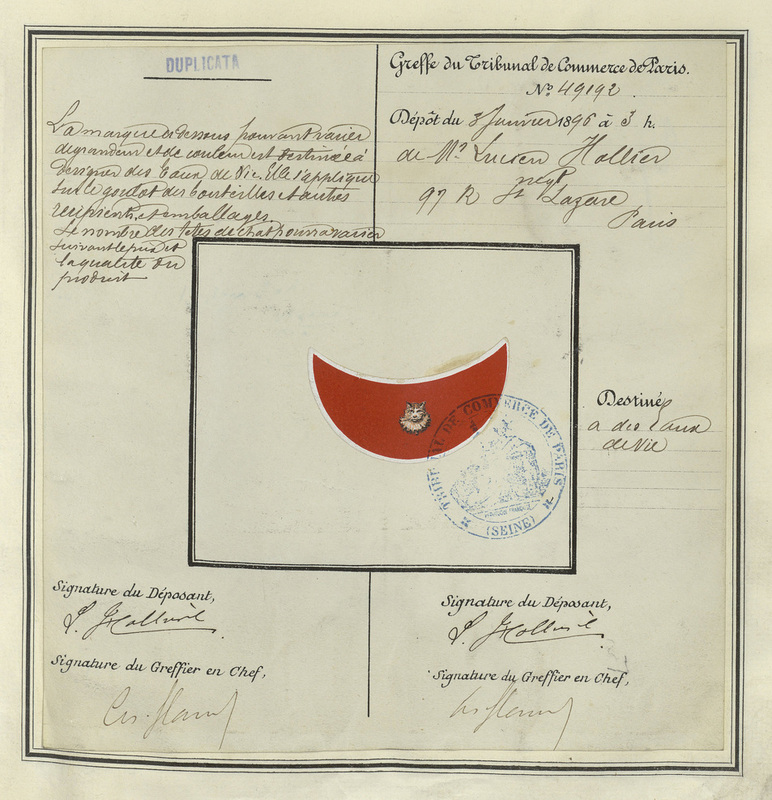 DUPLICATA
La marque ci dessous pouvant varier
de grandeur et de couleur est destinée à
désigner des Eaux de Vie. Elle s'applique
sur le goulot des bouteilles et autres
récipients et emballages
Le nombre des têtes de chat pourra varier
suivant le prix et
la qualité du
produit
Greffe du Tribunal de Commerce de Paris.
No. 49192.
Dépôt du 3 Janvier 1896 à 3 h.
de Mr. Lucien Hollier
negt
97 R St Lazare
Paris
TRIBUNAL DE COMMERCE DE PARIS
(SEINE)
Destinée
a des Eaux
de Vie
Signature du Déposant,
Signature du Greffier en Chef,
Signature du Déposant,
Signature du Greffier en Chef,